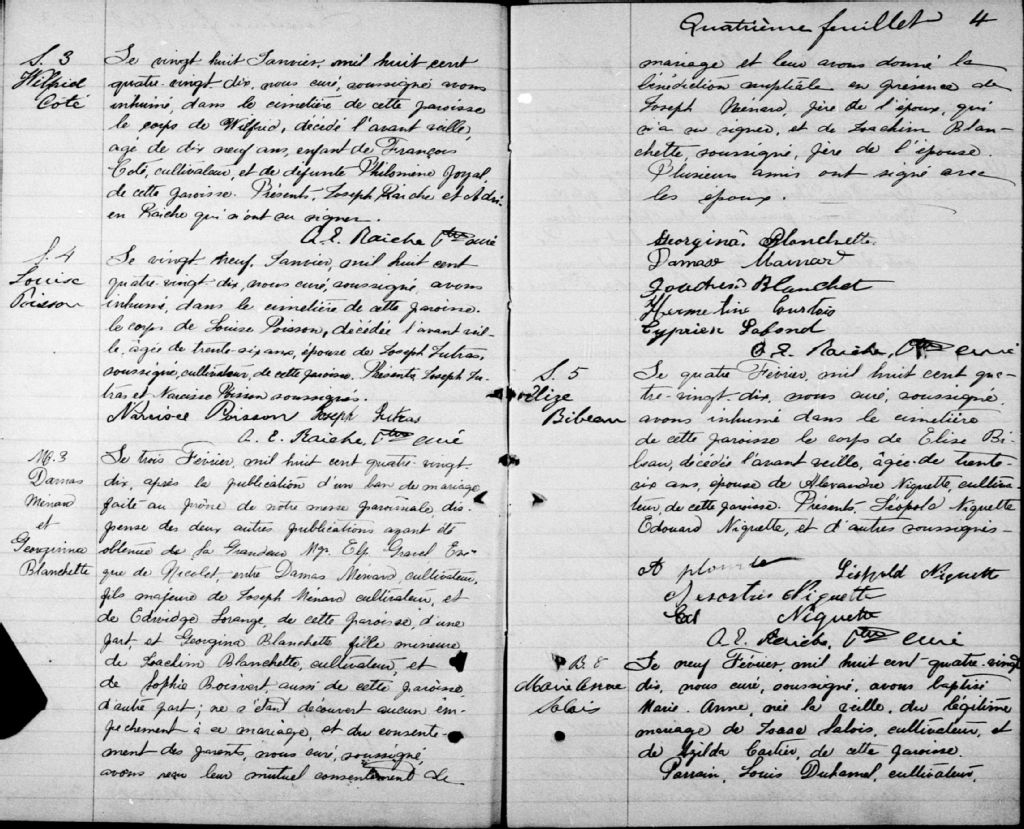 S. 3
Wilfrid
Coté
Le vingt huit Janvier, mil huit cent
quatre-vingt dix, nous curé, soussigné avons
inhumé, dans le cimetière de cette paroisse
le corps de Wilfrid, décédé l'avant veille,
agé de dix neuf ans, enfant de François
Coté, cultivateur, et de défunte Philomene Joyal,
de cette paroisse. Présents, Joseph Raiche et Adri-
en Raiche qui n'ont su signer.
A. E. Raiche Ptre curé
S. 4
Louise
Poisson
Le vingt neuf, Janvier, mil huit cent
quatre-vingt dix, nous curé, soussigné, avons
inhumé, dans le cimetière de cette paroisse.
le corps de Louise Poisson, décédée l'avant veil-
le, âgée de trente-six ans, épouse de Joseph Lutras,
soussigné, cultivateur, de cette paroisse. Présents Joseph Lu-
tras et Narcisse Poisson soussignés.
Narcisse Poisson Joseph Lutras
A. E. Raiche, Ptre curé
M. 3
Damas
Ménard
et
Georgina
Blanchette
Le trois Février, mil huit cent quatre-vingt
dix, après la publication d'un ban de mariage
faite au prône de notre messe paroissiale dis-
pense des deux autres publications ayant été
obtenue de Sa Grandeur Mgr. Elp. Gravel Evê-
que de Nicolet, entre Damas Ménard, cultivateur,
fils majeur de Joseph Ménard cultivateur, et
de Edwidge Lorange, de cette paroisse, d'une
part, et Georgina Blanchette fille mineure
de Joachim Blanchette, cultivateur, et
de Sophie Boisvert, aussi de cette paroisse
d'autre part; ne s'étant decouvert aucun em-
pechement à ce mariage, et du consente-
ment des parents, nous curé, soussigné,
avons reçu leur mutuel consentement de
Quatrième feuillet 4
mariage et leur avons donné la
bénédiction nuptiale en présence de
Joseph Ménard, père de l'époux, qui
n'a su signer, et de Joachim Blan-
chette, soussigné, père de l'épouse.
Plusieurs amis ont signé avec
les époux.
Georgina Blanchette
Damase Mainard
Joachin Blanchet
Hermeline Courtois
Cyprien Lafond
A. E. Raiche, Ptre curé
S. 5
Elize
Bibeau
Le quatre Février, mil huit cent qua-
tre-vingt dix, nous curé, soussigné,
avons inhumé dans le cimetière
de cette paroisse le corps de Elise Bi-
beau, décédée l'avant veille, âgée de trente-
six ans, épouse de Alexandre Niquette, cultiva-
teur, de cette paroisse. Présents, Léopold Niquette
Edouard Niquette, et d'autres soussignés-
A plourde Léopold Niquette
Niquette
Ed Niquette
A. E. Raiche, Ptre curé
B. 8
Marie Anne
Salois
Le neuf Février, mil huit cent-quatre-vingt
dix, nous curé, soussigné, avons baptisé
Marie-Anne, née la veille, du légitime
mariage de Isaac Salois, cultivateur, et
de Ezilda Cartier, de cette paroisse.
Parrain, Louis Duhamel, cultivateur,